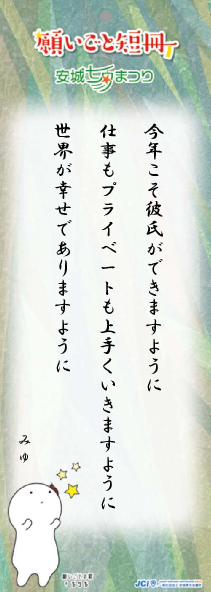 願いごと短冊
安城七夕まつり
今年こそ彼氏ができますように
仕事もプライベートも上手くいきますように
世界が幸せでありますように
みゆ
JCI